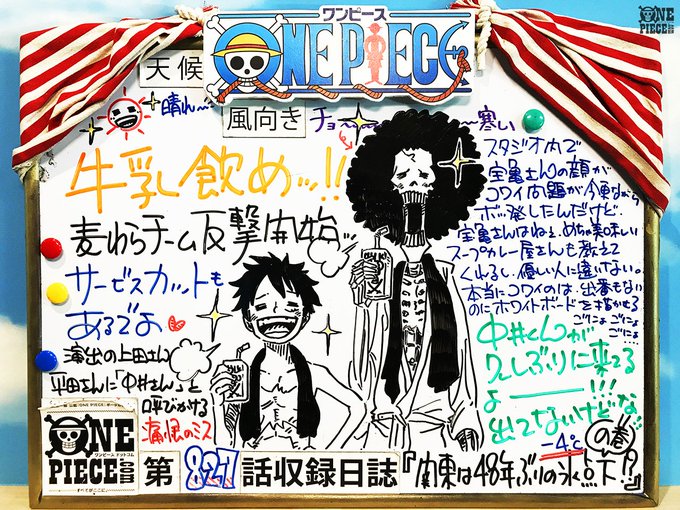 ONE
PIECE
.COM
ワンピース
ONE PIECE
天候
晴れ〜
風向き
チョ〜寒い
牛乳飲めッ!!
麦わらチーム反撃開始ッ
サービスカットも
あるでよ
演出の上田さん
平田さんに「中井さん」と
呼びかける
痛恨のミス
スタジオ内で
宝亀さんの顔が
コワイ問題が今更ながら
ボッ発したんだけど
宝亀さんはねぇ、めちゃ美味しい
スープカレー屋さんも教えて
くれるし、優しい人に違いない。
本当にコワイのは、出番もない
のにホワイトボードを描かせる
ごにょごにょ
ごにょ
中井くんが
久しぶりに来てる
よ――!!!
出てないけどな
-4℃
の巻
ONE
PIECE
.COM
ワンピース ドットコム
すべてがここに
第827話収録日誌『関東は48年ぶりの氷点下!?』